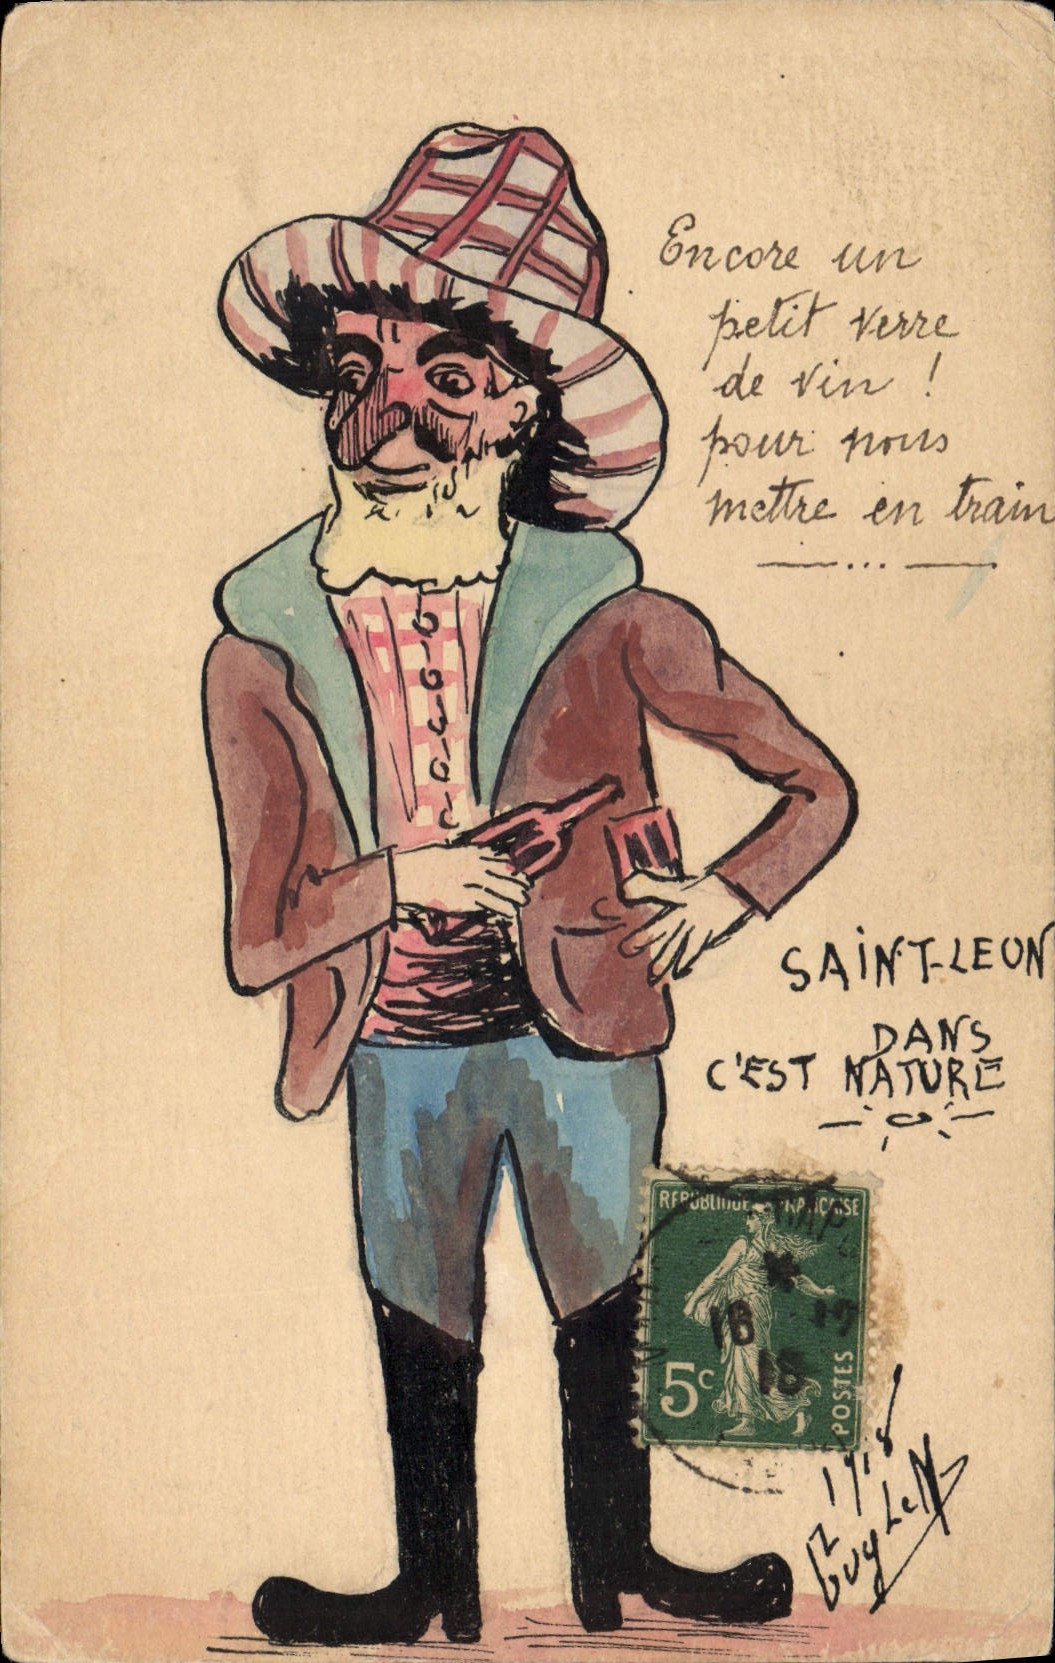 Encore un
petit verre
de vin !
pour nous
mettre en train
SAINT-LEON
DANS
C'EST NATURE
REPUBLIQUE FRANCAISE
16
15
5c
POSTES
1918